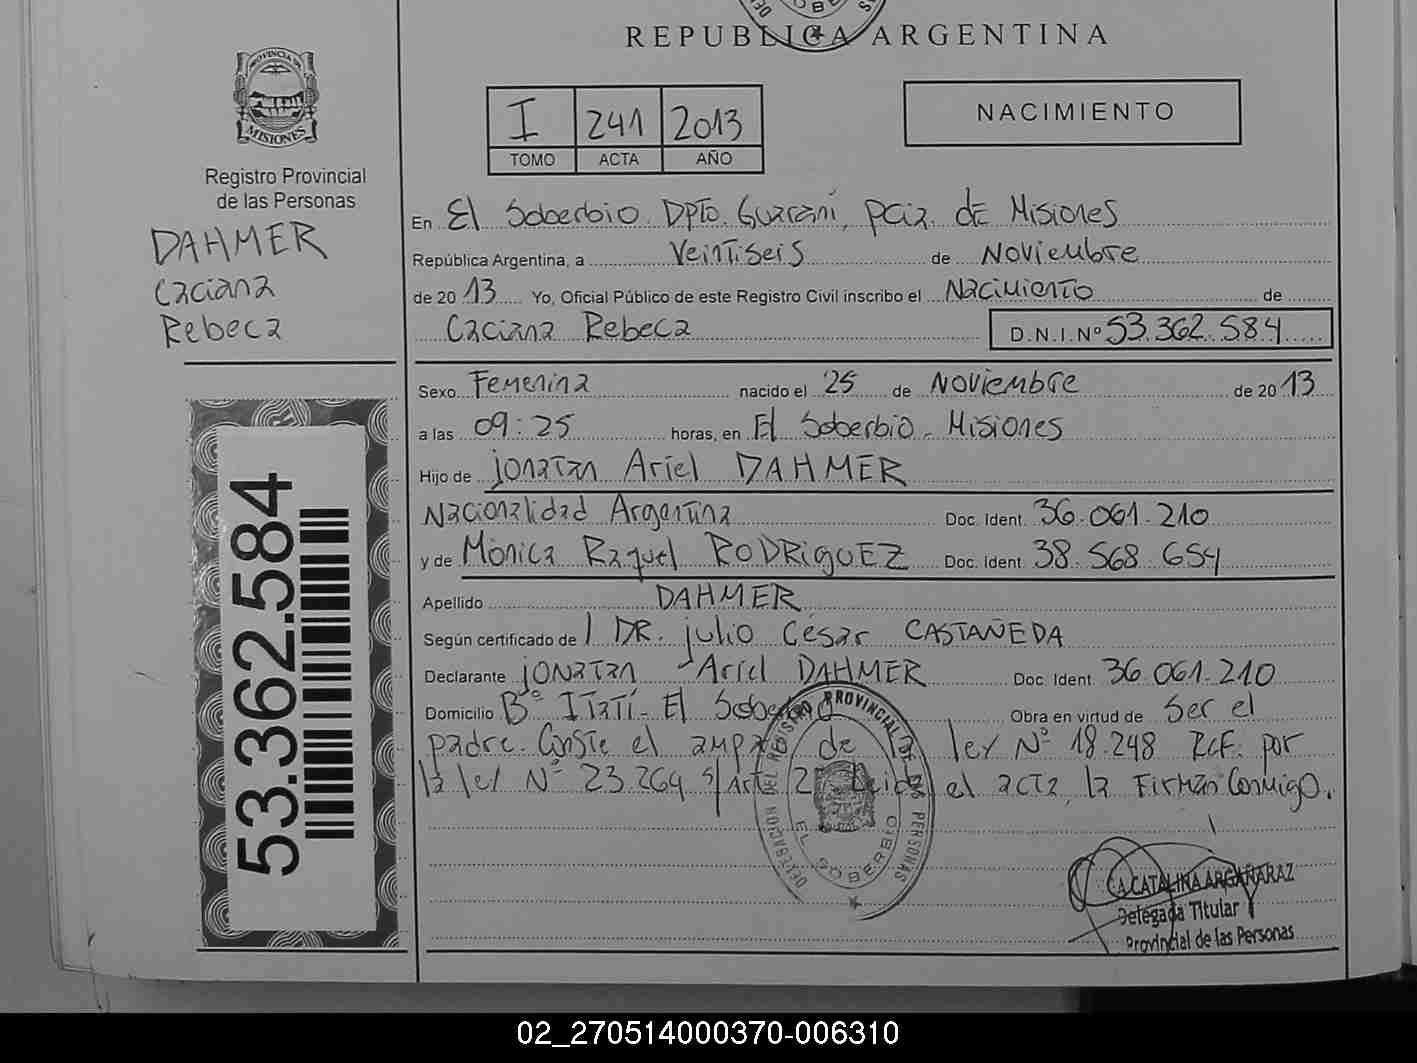 REPUBLICA ARGENTINA
PROVINCIA DE
MISIONES
Registro Provincial
de las Personas
DAHMER
Caciana
Rebeca
53.362.584
I 241 2013
TOMO ACTA AÑO
NACIMIENTO
En El Soberbio Dpto. Guaraní, pcia. de Misiones
República Argentina, a Veintiseis de Noviembre
de 2013 Yo, Oficial Público de este Registro Civil inscribo el Nacimiento de
Caciana Rebeca D.N.I.Nº 53.362.584
Sexo Femenina nacido el 25 de Noviembre de 2013
a las 09:25 horas, en El Soberbio - Misiones
Hijo de jonatan Ariel DAHMER
Nacionalidad Argentina Doc. Ident. 36.061.210
y de Mónica Raquel RODRIGUEZ Doc. Ident. 38.568.654
Apellido DAHMER
Según certificado de DR. julio César CASTAÑEDA
Declarante jonatan Ariel DAHMER Doc. Ident. 36.061.210
Domicilio Bº Itatí - El Soberbio Obra en virtud de Ser el
padre. Conste el de ley Nº 18.248 Ref. por
la ley Nº 23.264 s/art 2 Leida el acta, la Firman Conmigo.
DELEGACION DEL REGISTRO PROVINCIAL DE LAS PERSONAS
EL SOBERBIO
CATALINA ARGAÑARAZ
Delegada Titular
Provincial de las Personas
02_270514000370-006310